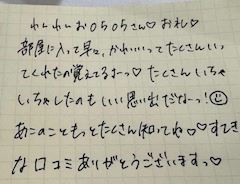 わんわんお0505さん♡お礼♡
部屋に入って早々、かわいいってたくさんいっ
てくれたの覚えてるよーっ♡たくさんいちゃ
いちゃしたのもいい思い出だなーっ!☺
あこのこともっとたくさん知ってね♡♡すてき
な口コミありがとうございますっ♡